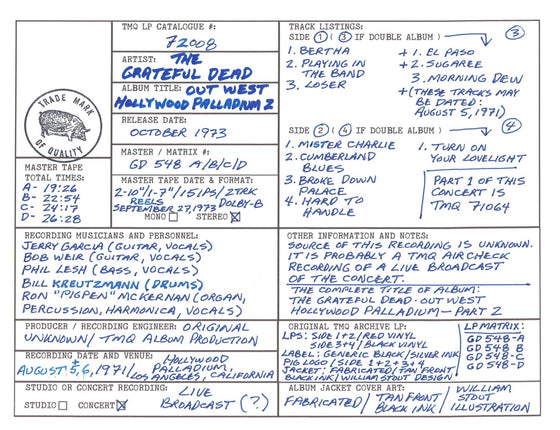 TRADE MARK
OF QUALITY
MASTER TAPE
TOTAL TIMES:
A- 19:26
B- 22:54
C- 24:17
D- 26:28
TMQ LP CATALOGUE #:
72008
ARTIST: THE
GRATEFUL DEAD
ALBUM TITLE: OUT WEST
HOLLYWOOD PALLADIUM 2
RELEASE DATE:
OCTOBER 1973
MASTER / MATRIX #:
GD 548 A/B/C/D
MASTER TAPE DATE & FORMAT:
2-10"/1-7"/15 IPS/2TRK
REELS DOLBY-B
SEPTEMBER 27, 1973
MONO STEREO
TRACK LISTINGS:
SIDE 1 ( 3 IF DOUBLE ALBUM ) 3
1. BERTHA
2. PLAYING IN
THE BAND
3. LOSER
+ 1. EL PASO
+ 2. SUGAREE
3. MORNING DEW
+ (THESE TRACKS MAY
BE DATED:
AUGUST 5, 1971)
SIDE 2 ( 4 IF DOUBLE ALBUM ) 4
1. MISTER CHARLIE
2. CUMBERLAND
BLUES
3. BROKE DOWN
PALACE
4. HARD TO
HANDLE
1. TURN ON
YOUR LOVELIGHT
PART 1 OF THIS
CONCERT IS
TMQ 71064
RECORDING MUSICIANS AND PERSONNEL:
JERRY GARCIA (GUITAR, VOCALS)
BOB WEIR (GUITAR, VOCALS)
PHIL LESH (BASS, VOCALS)
BILL KREUTZMANN (DRUMS)
RON "PIGPEN" McKERNAN (ORGAN,
PERCUSSION, HARMONICA, VOCALS)
OTHER INFORMATION AND NOTES:
SOURCE OF THIS RECORDING IS UNKNOWN.
IT IS PROBABLY A TMQ AIRCHECK
RECORDING OF A LIVE BROADCAST
OF THE CONCERT.
THE COMPLETE TITLE OF ALBUM:
THE GRATEFUL DEAD · OUT WEST
HOLLYWOOD PALLADIUM - PART 2
PRODUCER / RECORDING ENGINEER: ORIGINAL
UNKNOWN / TMQ ALBUM PRODUCTION
RECORDING DATE AND VENUE: HOLLYWOOD
AUGUST 5, + 6, 1971 / PALLADIUM,
LOS ANGELES, CALIFORNIA
STUDIO OR CONCERT RECORDING: LIVE
STUDIO CONCERT BROADCAST (?)
ORIGINAL TMQ ARCHIVE LP:
LPS: SIDE 1+2/RED VINYL
SIDE 3+4/BLACK VINYL
LABEL: GENERIC BLACK/SILVER INK
PIG LOGO / SIDE 1+2+3+4
JACKET: FABRICATED/TAN FRONT
BLACK INK/WILLIAM STOUT DESIGN
LP MATRIX:
GD 548-A
GD 548 B
GD 548-C
GD 548-D
ALBUM JACKET COVER ART:
FABRICATED / TAN FRONT / WILLIAM
BLACK INK STOUT
ILLUSTRATION